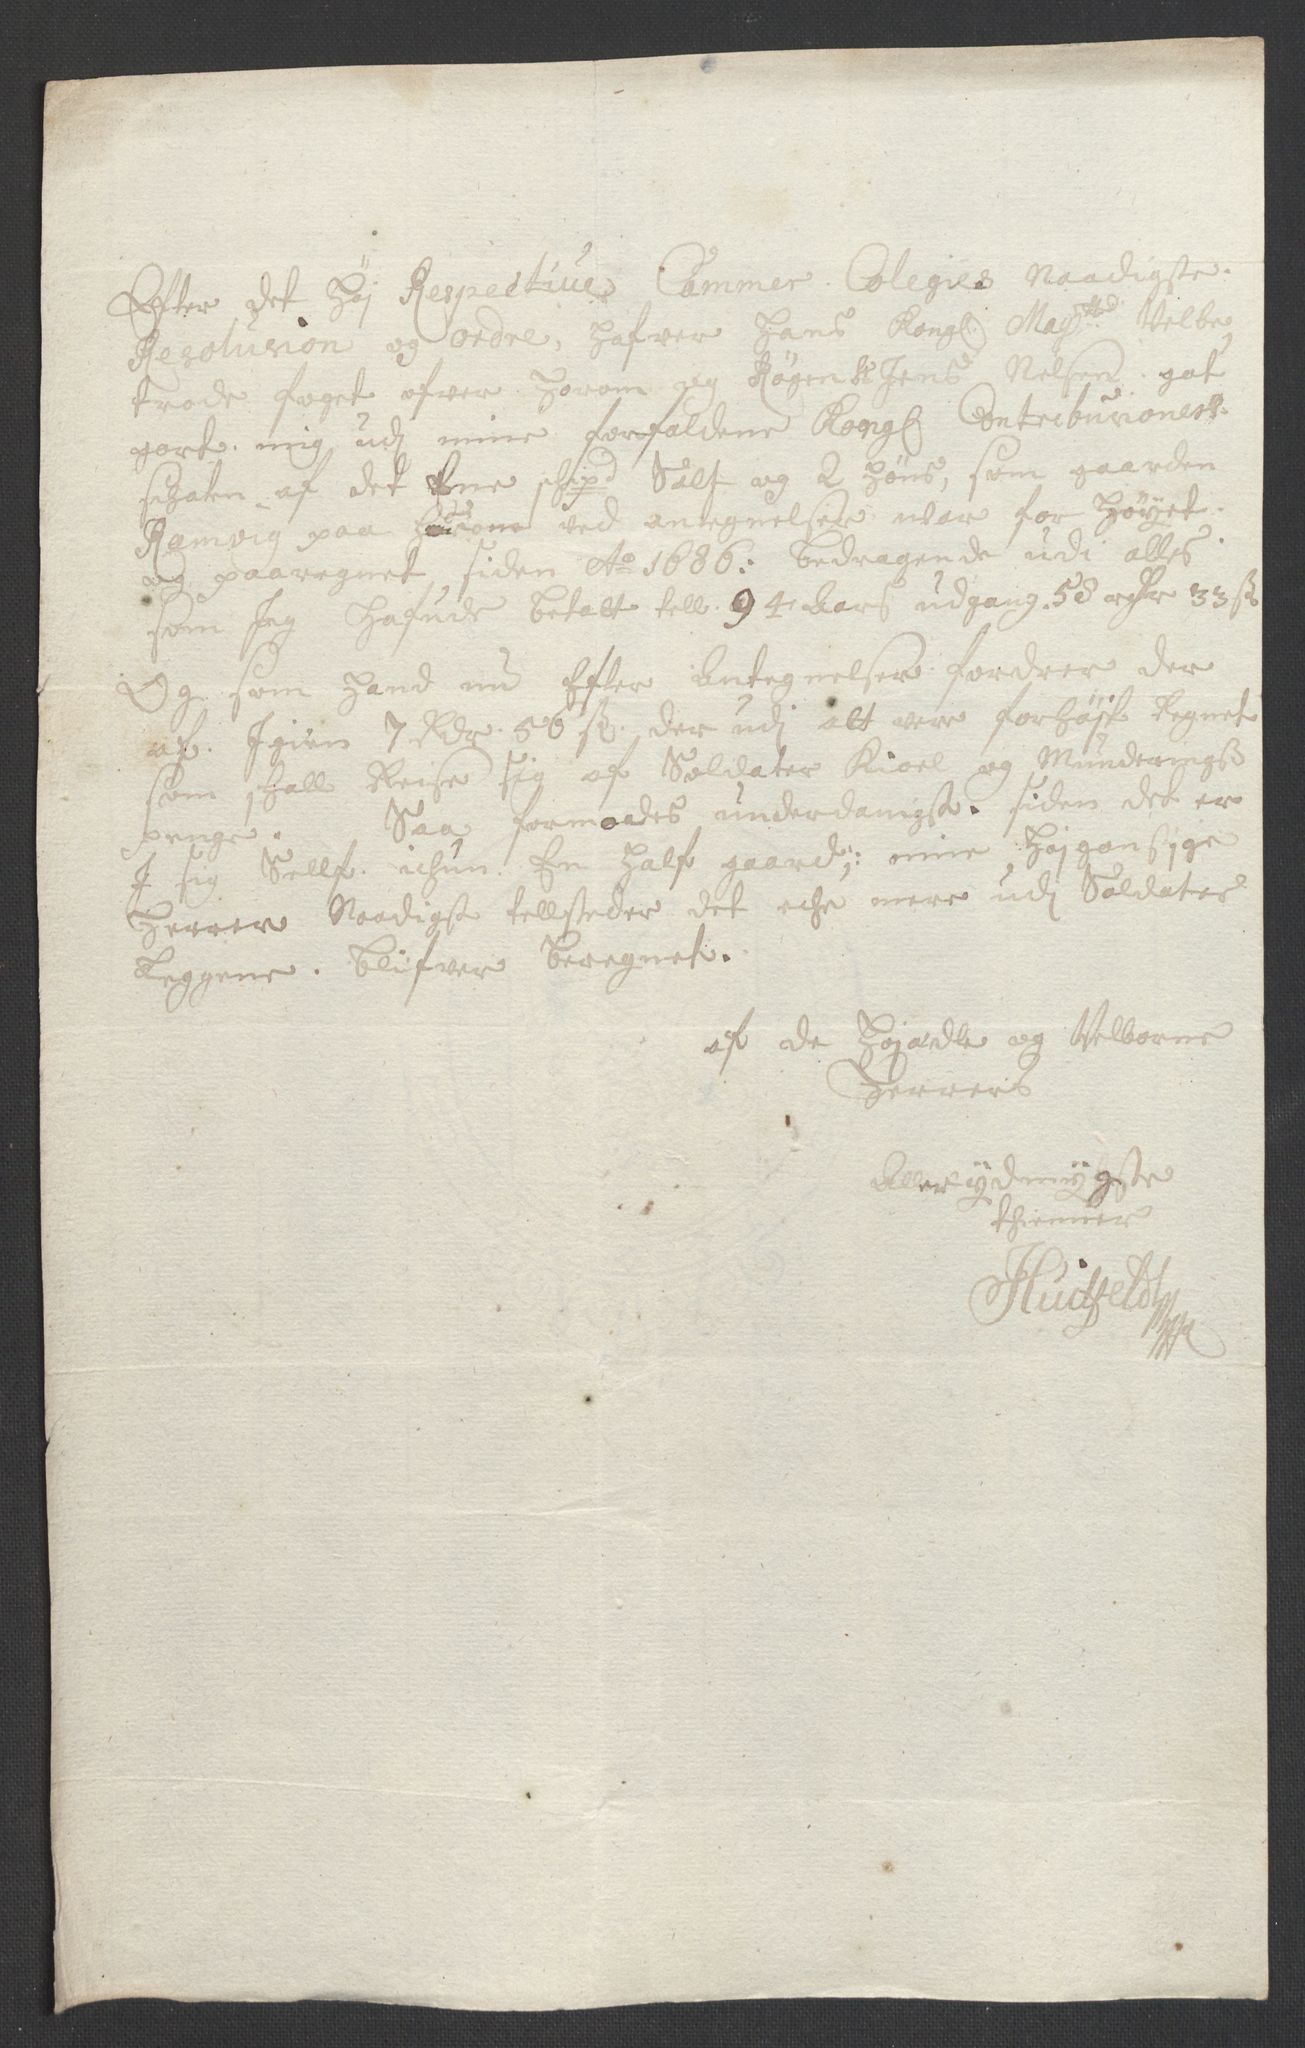 Efter det Høj Respective Cammer Colegies Naadigste
Resolusion og ordre, hafver Hans Kongl. Mayttd. Velbe,
trode foget ofver Jeren og Jens Nelsen got
giort mig udj mine forfaldene Kongl Contribusiones
schater af det Ene schpd Salt og 2 høns, som gaarden
Ramvig paa ved antegnelser war for høyet
og paaregnet siden Ao 1686: bedragende udi alles
som Jeg hafude betalt till 9¼ Aars udgang 58 rdr 33 s
Og som hand nu Efter Antegnelser fordrer der
af Igien 7 Rdr. 56 s. der udj alt vere forhøjt Regnet
som schall Reise sig af Soldater Kioel og Munderings
penge. Saa formodes underdanigst. siden det er
I sig Sellf ichun En half gaard, mine Højgonstige
Herrer Naadigst tillsteder det eche mere udj Soldater
Leggene. blifver beregnet.
af de Højædle og Velborne
Herrers
Allerÿdmÿgste
thienner
JHuitfeldt